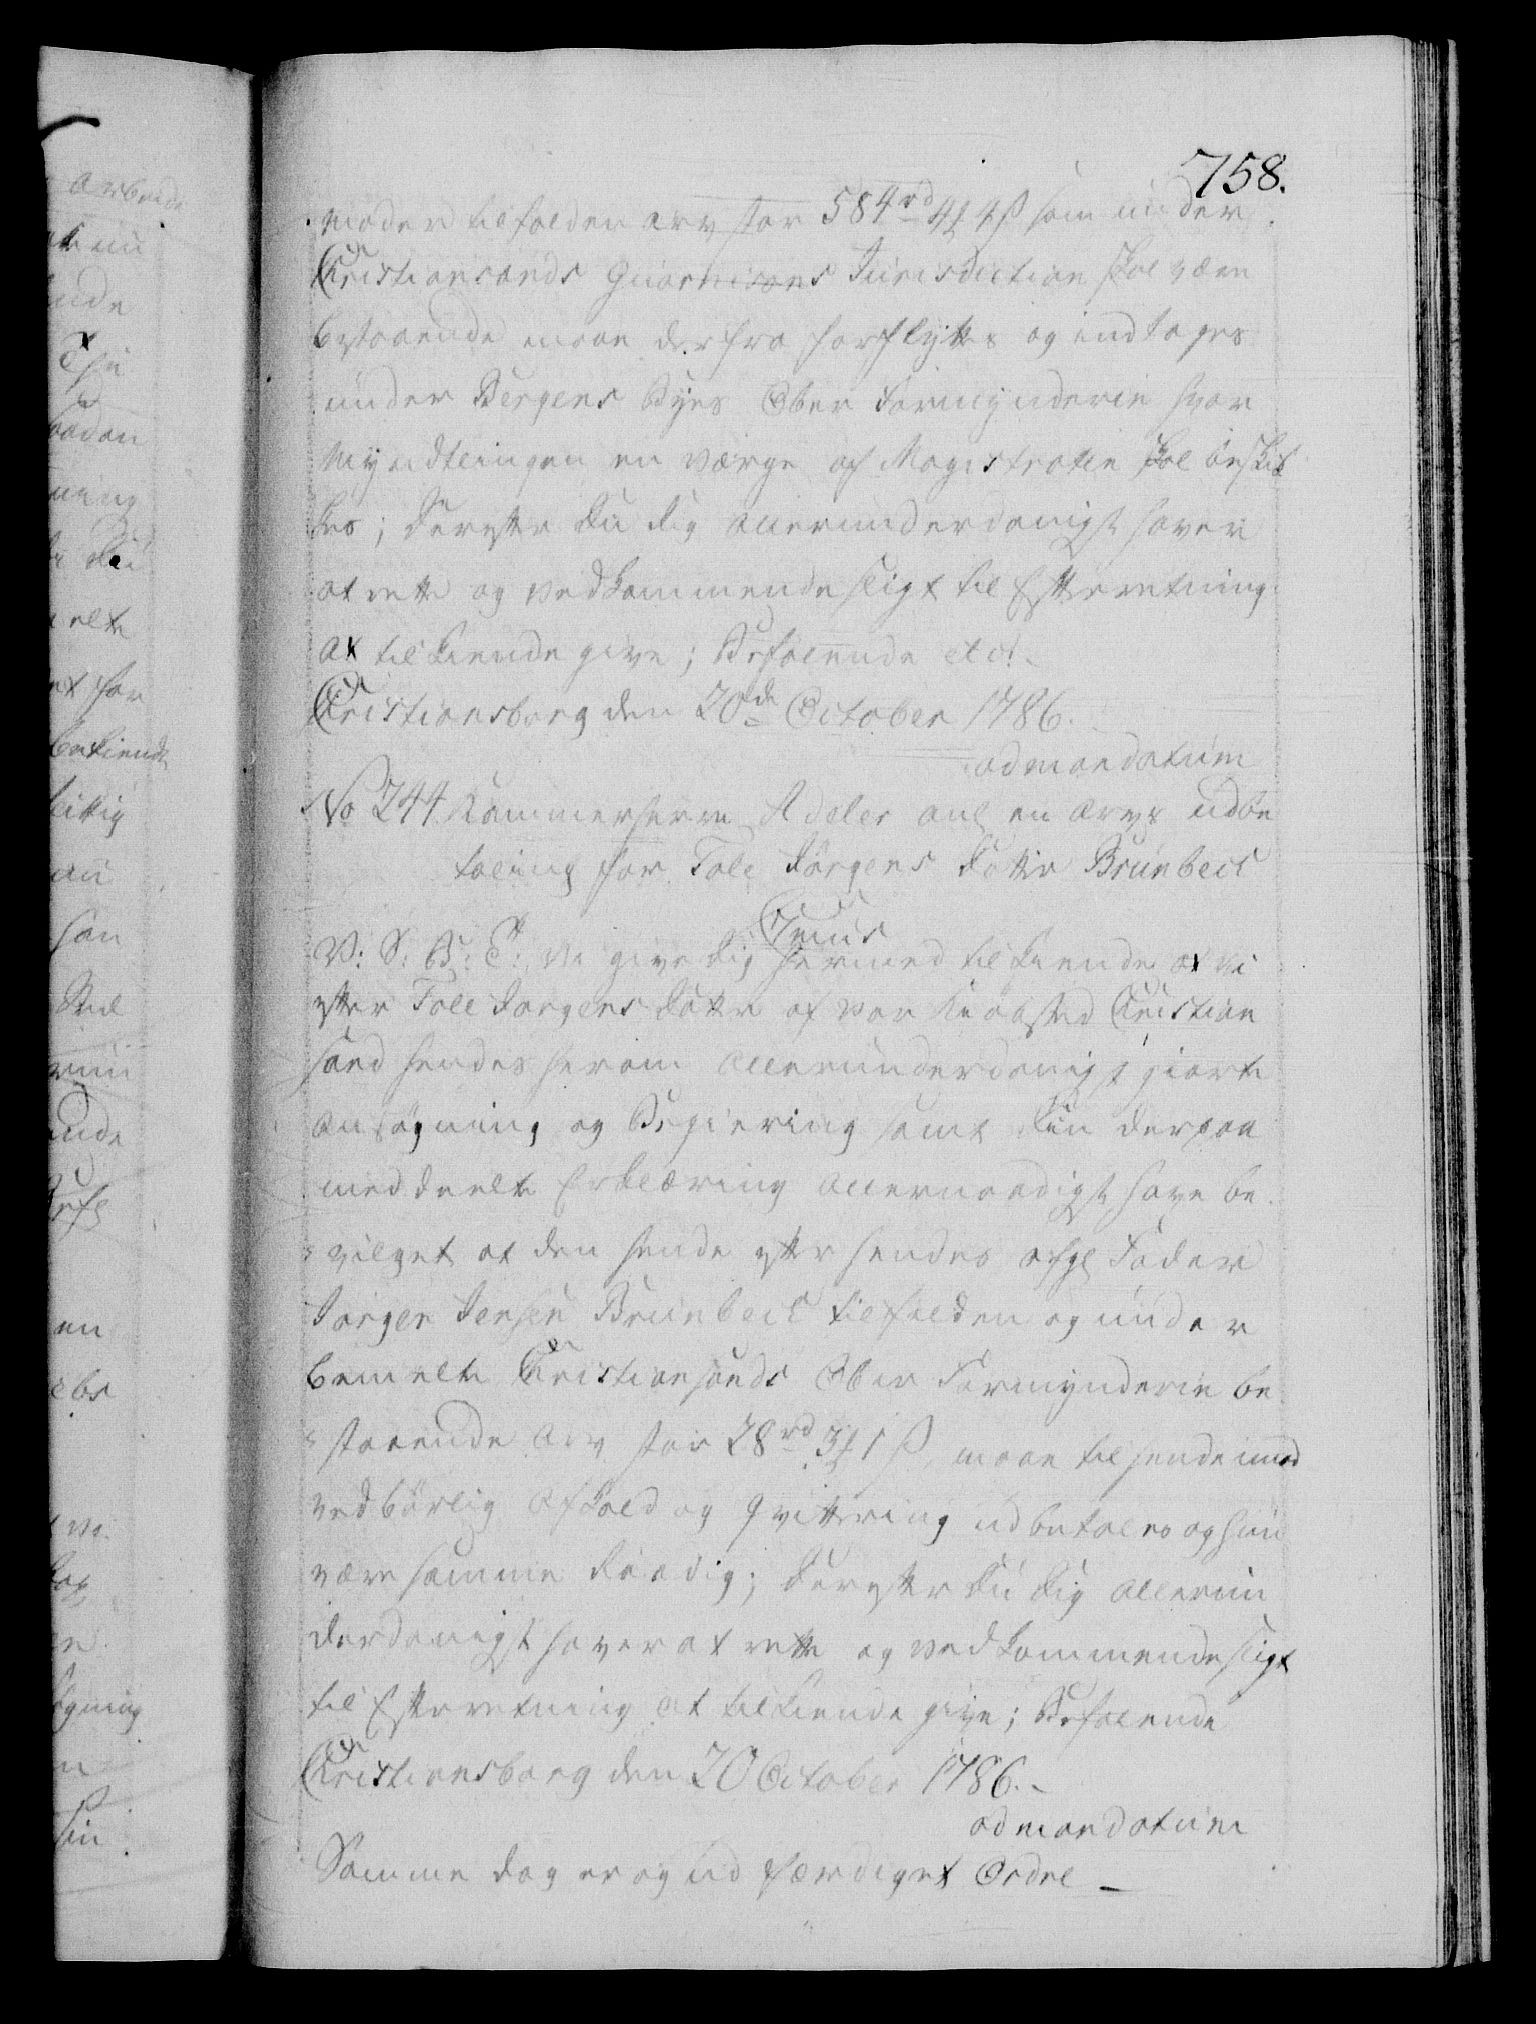 758.
moder tilfalden arv stor 584 rd 4 ɱ 4 ß som under
Christiansands Guarnisons Jurisdiction skal være
bestaaende maae derfra forflyttes og indtages
under Bergens Byes Ober Formynderie hvor
Myndtlingen en Værge af Magistraten skal beskik
kes; Derefter Du dig allerunderdanigst haver
at rette og vedkommende sligt til Efterretning
at tilkiende give; Befalende etc.
Christiansborg den 20de October 1786.
ad mandatum
No 244 Kammerherre Adeler anl en arvs udbe
taling for Tale Jörgens Datter Brunbech
Junus
V: S: G: T: Vi give dig hermed tilkiende at vi
efter Tale Jörgens Datter af vor Kiöbsted Christian
sand hendes herom allerunderdanigst giorte
Ansögning og Begiering samt Din derpaa
meddeelte Erklæring allernaadigst have be
vilget at den hende efter hendes afgl Fader
Jörgen Jensen Brunbech tilfalden og under
bemelte Christiansands Ober Formynderie be
staaende Arv stor 28 rd 3 ɱ 1 ß, maae til hende imod
vedbörlig Afkald og Qvittering udbetales og hun
være samme raadig; Derefter Du Dig allerun
derdanigst haver at rette og vedkommende sligt
til Efterretning at tilkiende give; Befalende
Christiansborg den 20 October 1786.
ad mandatum
Samme dag er og udfærdiget Ordre